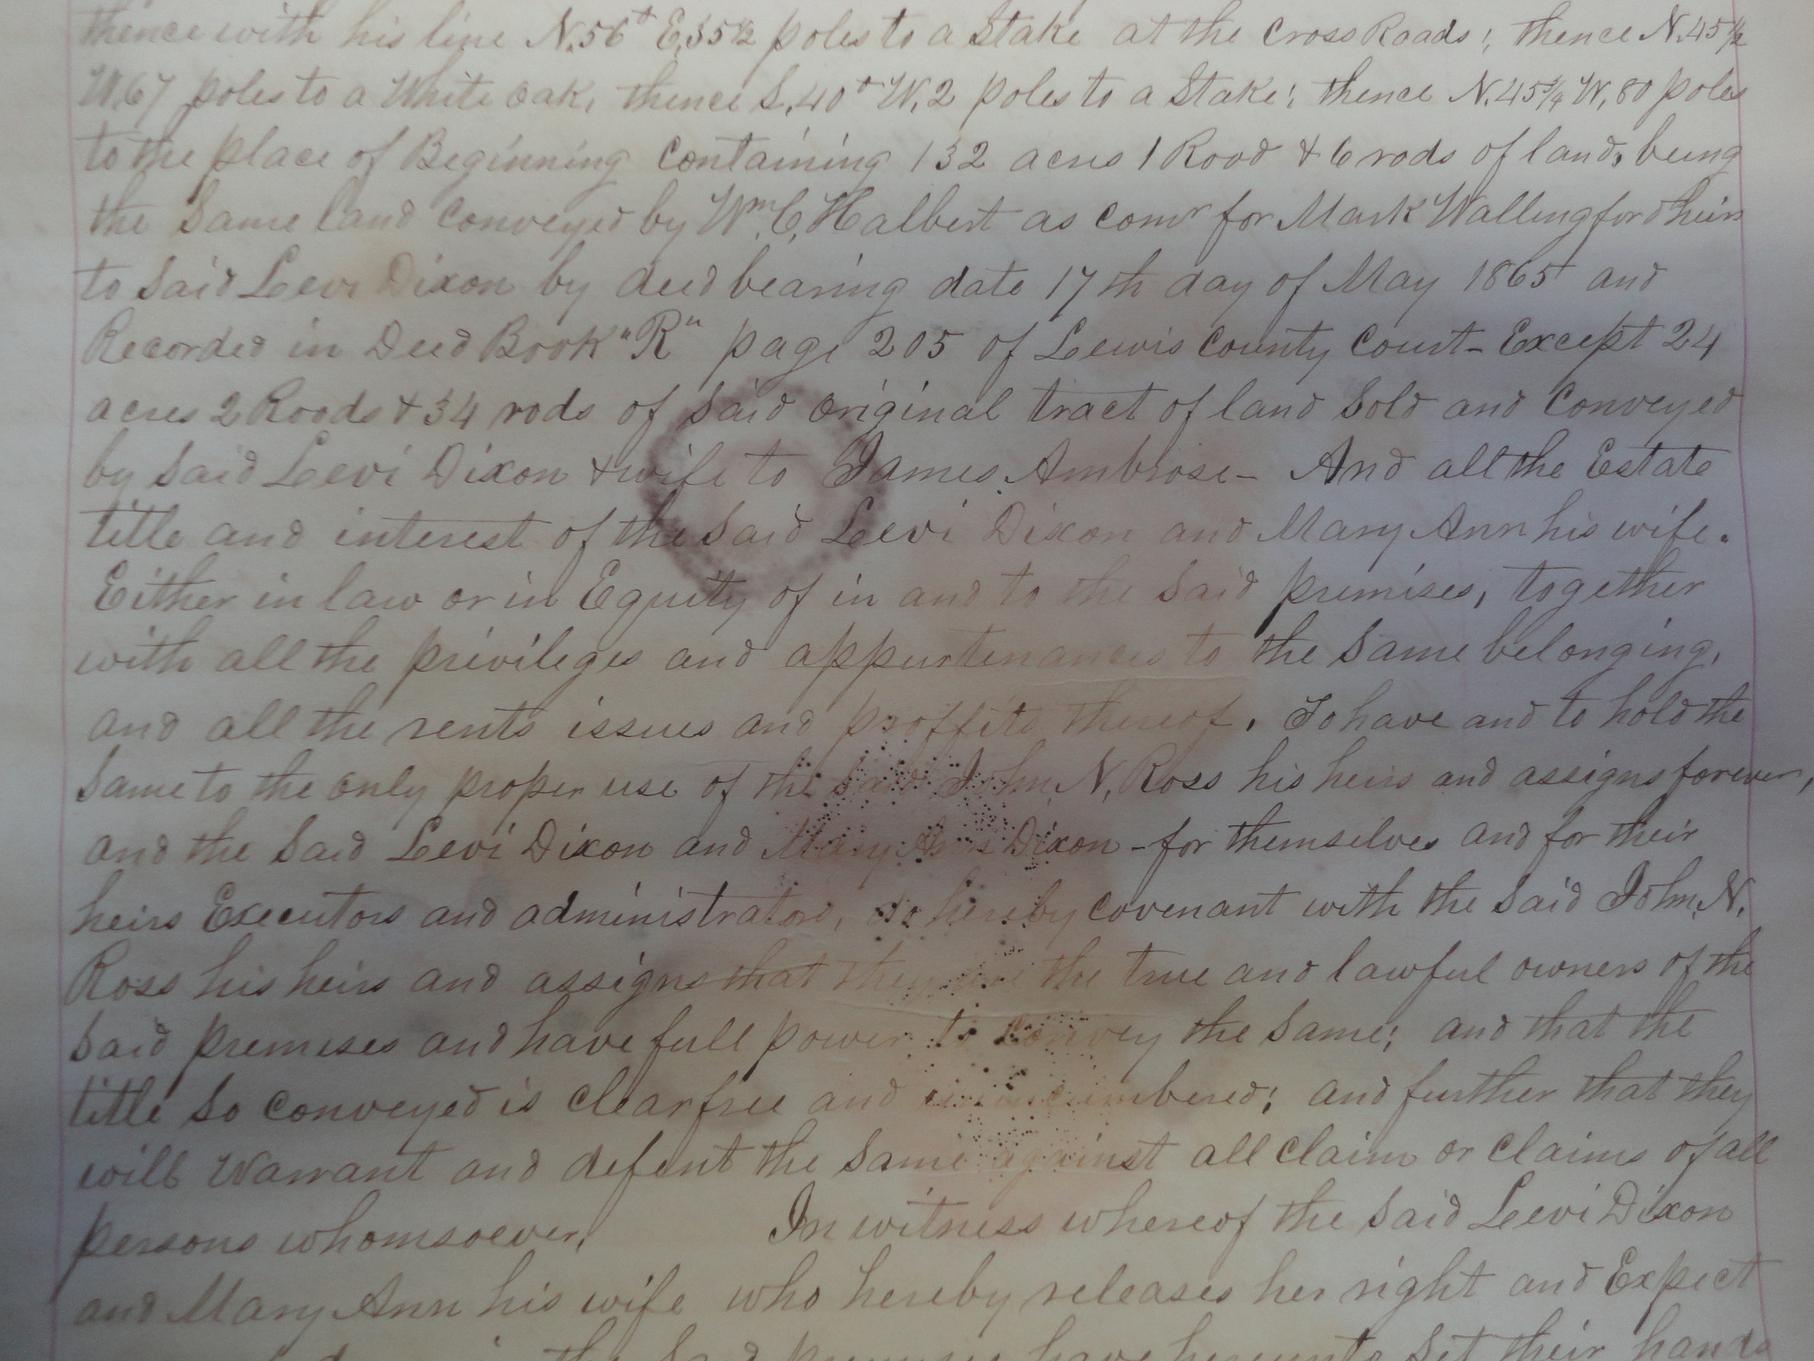 thence with his line N.56° E,35½ poles to a Stake at the Cross Roads; thence N.45½
W,67 poles to a White oak, thence S,40° W,2 poles to a Stake; thence N.45¾ W,80 poles
to the place of Beginning Containing 132 acres 1 Rood & 6 rods of land, being
the Same land Conveyed by Wm. C. Halbert as comr for Mark Wallingford heirs
to Said Levi Dixon by deed bearing date 17th day of May 1865 and
Recorded in Deed Book "R" page 205 of Lewis County Court - Except 24
acres 2 Roods & 34 rods of Said Original tract of land Sold and Conveyed
by Said Levi Dixon & wife to James Ambrose - And all the Estate
title and interest of the Said Levi Dixon and Mary Ann his wife.
Either in law or in Equity of in and to the Said premises, together
with all the privileges and appurtenances to the Same belonging,
and all the rents issues and proffits thereof. To have and to hold the
Same to the only proper use of the Said John N. Ross his heirs and assigns forever,
and the Said Levi Dixon and Mary Ann Dixon - for themselves and for their
heirs Executors and administrators, do hereby covenant with the Said John N.
Ross his heirs and assigns that they are the true and lawful owners of the
Said premeses and have full power to Convey the Same; and that the
title So Conveyed is clear free and unincumbered; and further that they
will Warrant and defent the Same against all claim or claims of all
persons whomsoever, In witness whereof the Said Levi Dixon
and Mary Ann his wife who hereby releases her right and Expect
the Said premises have hereunto Set their hands